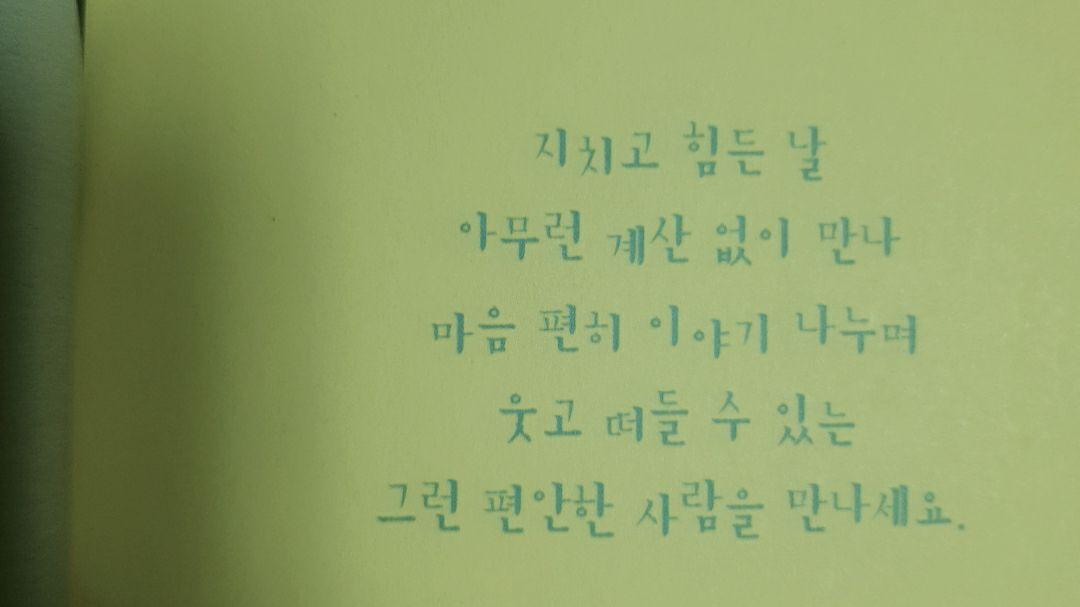 지치고 힘든 날
아무런 계산 없이 만나
마음 편히 이야기 나누며
웃고 떠들 수 있는
그런 편안한 사람을 만나세요.